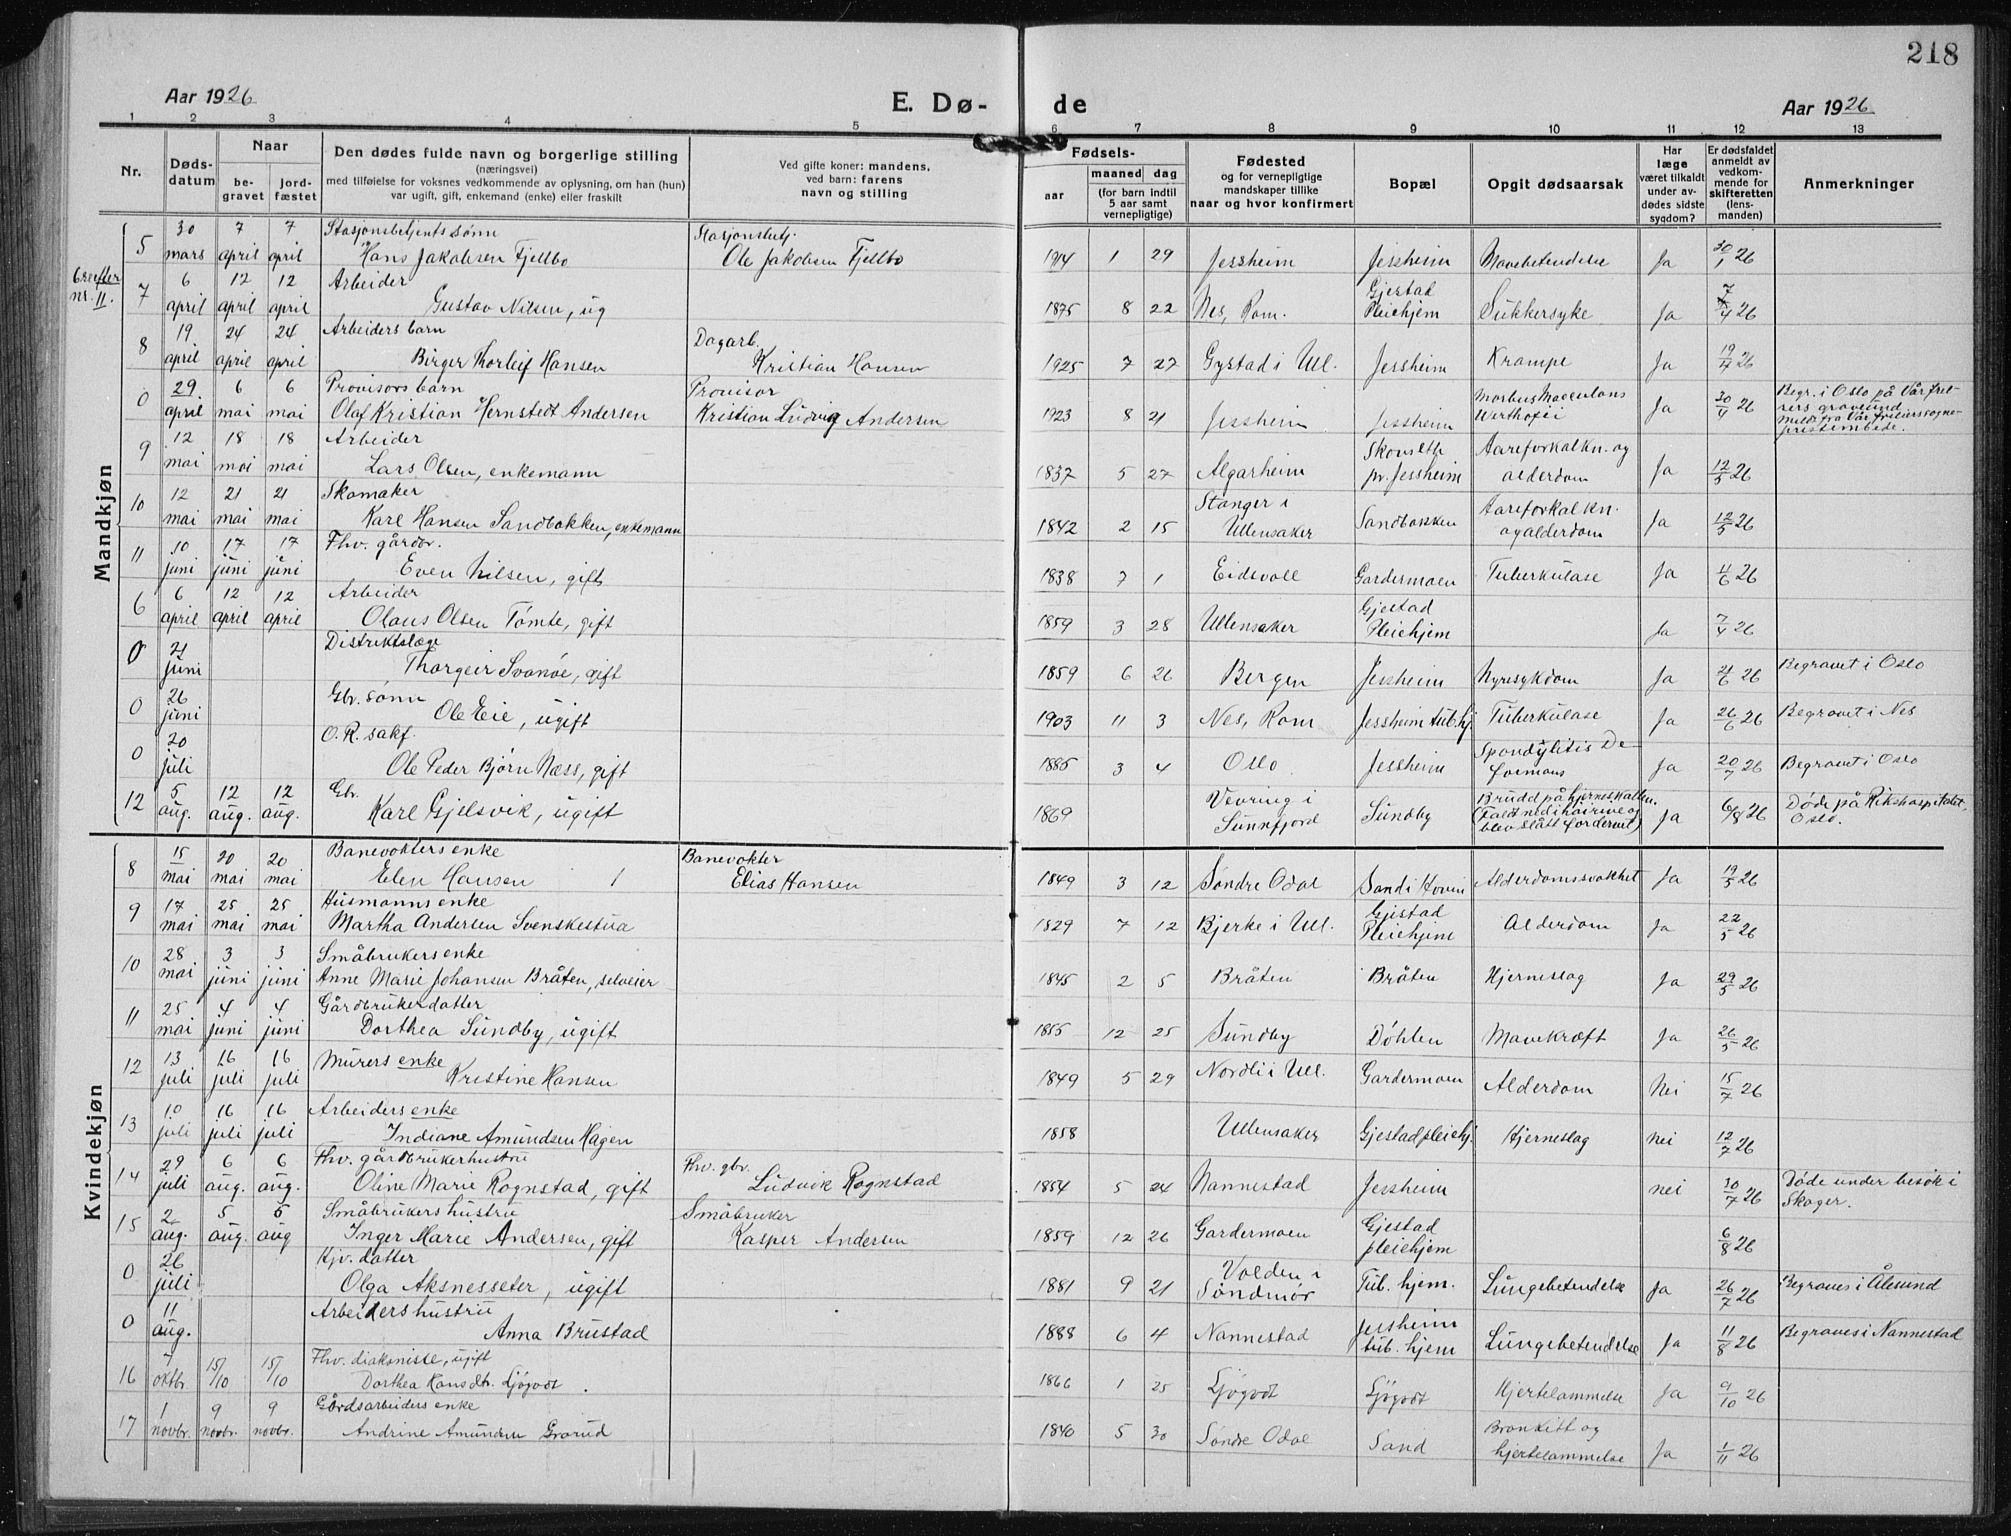 218
Aar 1926
E. Dø-
de
Aar 1926
1 2 3 4 5 6 7 8 9 10 11 12 13
Nr.
Døds-
datum
Naar
be-
gravet
jord-
fæstet
Den dødes fulde navn og borgerlige stilling
(næringsvei)
med tilføielse for voksnes vedkommende av oplysning, om han (hun)
var ugift, gift, enkemand (enke) eller fraskilt
Ved gifte koner: mandens,
ved barn: farens
navn og stilling
Fødsels-
aar
maaned dag
(for barn indtil
5 aar samt
vernepligtige)
Fødested
og for vernepligtige
mandskaper tillike
naar og hvor konfirmert
Bopæl
Opgit dødsaarsak
Har
læge
været tilkaldt
under av-
dødes sidste
sygdom?
Er dødsfaldet
anmeldt av
vedkom-
mende for
skifteretten
(lens-
manden)
Anmerkninger
Mandkjøn
30 7 7 Stasjonsbetjents sønn Stasjonsbetj.
5 mars april april Hans Jakobsen Fjellbo Ole Jakobsen Fjellbo 1914 1 29 Jessheim Jessheim Mavebetendelse Ja 30/1 26
6 se efter
nr. 11.
6 12 12 Arbeider Gjestad
7 april april april Gustav Nilsen, ug 1875 8 22 Nes, Rom. Pleiehjem Sukkersyke Ja 7/4 26
19 24 24 Arbeiders barn Dagarb.
8 april april april Birger Thorleif Hansen Kristian Hansen 1925 7 27 Gystad i Ull. Jessheim Krampe Ja 19/4 26
29 6 6 Provisors barn Provisor Morbus Maculosus Begr. i Oslo på Vår frel-
0 april mai mai Olaf Kristian Hernstedt Andersen Kristian Ludvig Andersen 1923 8 21 Jessheim Jessheim Werlhofii Ja 30/4 26 sers gravlund
12 18 18 Arbeider Aareforkalkn. og
9 mai mai mai Lars Olsen, enkemann 1837 5 27 Algarheim pr. Jessheim alderdom Ja 12/5 26
12 21 21 Skomaker Stanger i Aareforkalkn.
10 mai mai mai Karl Hansen Sandbakken, enkemann 1842 2 15 Ullensaker Sandbakken og alderdom Ja 12/5 26
10 17 17 Fhv. gårdbr.
11 juni juni juni Even Nilsen, gift 1838 7 1 Eidsvoll Gardermoen Tuberkulose Ja 11/6 26
6 12 12 Arbeider Gjestad
6 april april april Olaus Olsen Tømte, gift 1859 3 28 Ullensaker Pleiehjem Ja 7/4 26
21 Distriktslæge
0 juni Thorgeir Svanøe, gift 1859 6 26 Bergen Jessheim Nyresykdom Ja 21/6 26 Begravet i Oslo
26 Gbr. sønn
0 juni Ole Eie, ugift 1903 11 3 Nes, Rom Jessheim tub.hj. Tuberkulose Ja 26/6 26 Begravet i Nes
20 O. R. sakf. Spondylitis De-
0 juli Ole Peder Bjørn Næss, gift 1885 3 4 Oslo Jessheim formans Ja 20/7 26 Begravet i Oslo
5 12 12 Gbr. Vevring i Brudd på hjerneskallen.
12 aug. aug. aug. Karl Gjelsvik, ugift 1869 Sunnfjord Sundby Ja 6/8 26 Døde på Rikshospitalet. Oslo.
Kvindekjøn
15 20 20 Banevokters enke Banevokter
8 mai mai mai Elen Hansen Elias Hansen 1849 3 12 Søndre Odal Sand i Hovin Alderdomssvakhet Ja 19/5 26
17 25 25 Husmanns enke Gjestad
9 mai mai mai Martha Andersen Svenskestua 1829 7 12 Bjerke i Ull. Pleiehjem Alderdom Ja 22/5 26
28 3 3 Småbrukers enke
10 mai juni juni Anne Marie Johansen Bråten, selveier 1845 2 5 Bråten Bråten Hjerneslag Ja 29/5 26
25 4 4 Gårdbrukerdatter
11 mai juni juni Dorthea Sundby, ugift 1855 12 25 Sundby Døhlen Mavekræft Ja 26/5 26
13 16 16 Murers enke
12 juli juli juli Kristine Hansen 1849 5 29 Nordli i Ull. Gardermoen Alderdom Nei 15/7 26
10 16 16 Arbeiders enke
13 juli juli juli Indiane Amundsen Hagen 1858 Ullensaker Gjestad pleiehj. Hjerneslag nei 12/7 26
29 6 6 Fhv. gårdbrukerhustru Fhv. gbr.
14 juli aug. aug. Oline Marie Rognstad, gift Ludvik Rognstad 1854 5 24 Nannestad Jessheim nei 30/7 26 Døde under besøk i Skoger.
2 5 5 Småbrukers hustru Småbruker Gjestad
15 aug. aug. aug Inger Marie Andersen, gift Kasper Andersen 1859 12 26 Gardermoen pleiehjem 6/8 26
26 Kjv. datter Volden i
0 juli Olga Aksnesseter, ugift 1881 9 21 Søndmør Tub. hjem. Lungebetendelse Ja 26/7 26 Begraves i Ålesund
11 Arbeiders hustru Jessheim
0 aug. Anna Brustad 1888 6 4 Nannestad tub. hjem Lungebetendelse Ja 11/8 26 Begraves i Nannestad
7 15/10 15/10 Fhv. diakonisse, ugift
16 oktbr. Dorthea Hansdtr. Ljøgodt 1866 1 25 Ljøgodt Ljøgodt Hjertelammelse Ja 9/10 26
1 9 9 Gårdsarbeiders enke Bronkitt og
17 novbr. novbr. novbr. Andrine Amundsen Grorud 1840 5 30 Søndre Odal Sand hjertelammelse Ja 1/11 26